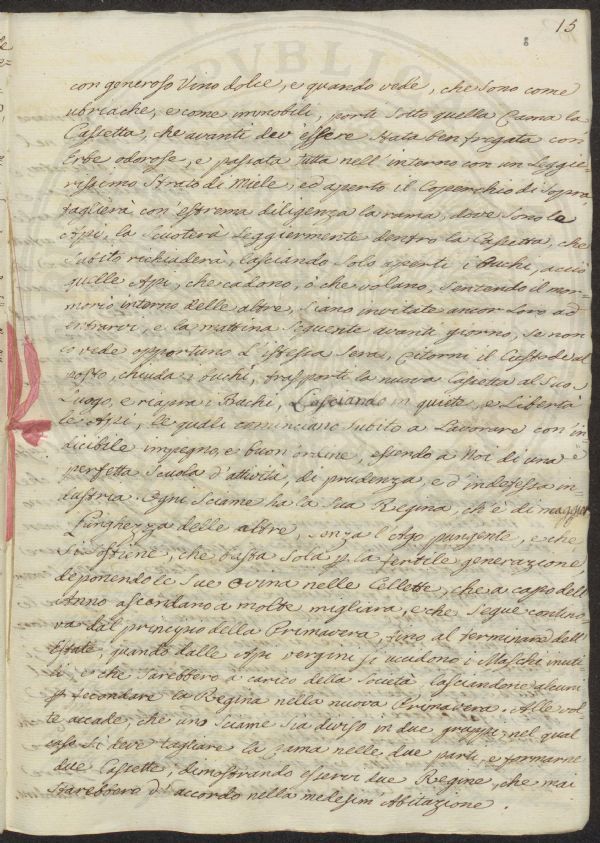 15
con generoso Vino dolce, e quando vede, che sono come
ubriache, e come immobili, porti sotto quella Rama la
Cassetta, che avanti dev' essere stata ben frigata con
Erbe odorose, e passata tutta nell' interno con un Leggie-
rissimo Strato di Miele, ed aperto il Coperchio di Sopra
taglierà con' estrema diligenza la rama, dove sono le
Api, la scuoterà Leggiermente dentro la Cassetta, che
subito richiuderà, lasciando solo aperti i buchi, acciò
quelle Api, che cadono, ò che volano, sentendo il mor-
morio interno delle altre, siano invitate ancor Loro ad
entrarvi, e la mattina seguente avanti giorno, se non
crede opportuno L'istessa Sera, ritorni il Custode al
posto, chiuda i buchi, trasporti la nuova Cassetta al Suo
Luogo, e riapra i Bachi, Lasciando in quiete, e Libertà
le Api, le quali cominciano subito a Lavorare con' in-
dicibile impegno, e buon' ordine, essendo a Noi di una
perfetta Scuola d'attività, di prudenza, e d'indefessa in-
dustria. Ogni Sciame ha la Sua Regina, ch'è di maggior
Lunghezza delle altre, senza l'Ago pungente, e che
si ostiene, che basta sola p la fertile generazione,
deponendo le Sue Ovina nelle Cellette, che a capo dell'
Anno ascendano a molte migliara, e che segue contino-
va dal principio della Primavera, fino al terminare dell'
Estate, quando dalle Api vergini si uccidono i Maschi inuti-
li, e che sarebbero a carico della Società, lasciandone alcuni
p fecondare la Regina nella nuova Primavera. Alle vol-
te accade, che uno Sciame sia diviso in due grappi, nel qual
caso si deve tagliare la rama nelle due parti, e formarne
due Cassette, dimostrando esservi due Regine, che mai
starebbero d'accordo nella medesim' Abitazione.